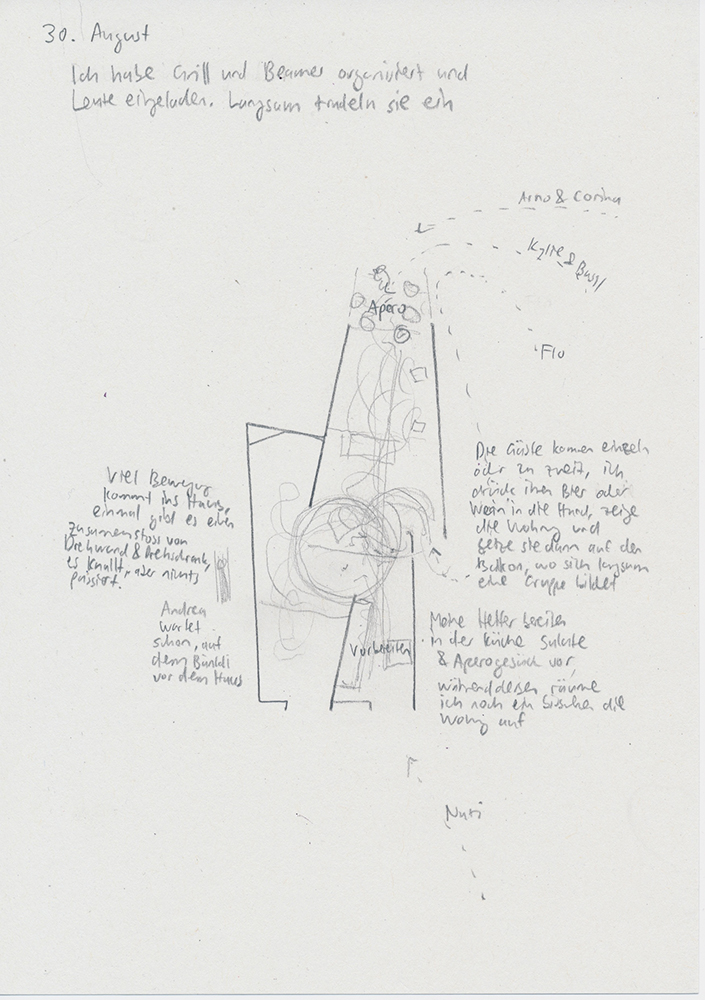 30. August
Ich habe Grill und Beamer organisiert und
Leute eingeladen. Langsam trudeln sie ein
Arno & Corina
Kylie & Bussi
Flo
Apero
Die Gäste kommen einzeln
oder zu zweit, ich
drücke ihnen Bier oder
Wein in die Hand, zeige
die Wohng und
setze sie dann auf den
Balkon, wo sich langsam
eine Gruppe bildet
Viel Bewegung
kommt ins Haus,
einmal gibt es einen
Zusammenstoss von
Drehwand & Drehschrank,
es knallt, aber nichts
passiert.
Andrea
wartet
schon, auf
dem Bänkli
vor dem Haus
Vorbereiten
Meine Helfer bereiten
in der Küche Salate
& Aperogebäck vor,
währenddessen räume
ich noch ein bisschen die
Wohng auf
Nuri